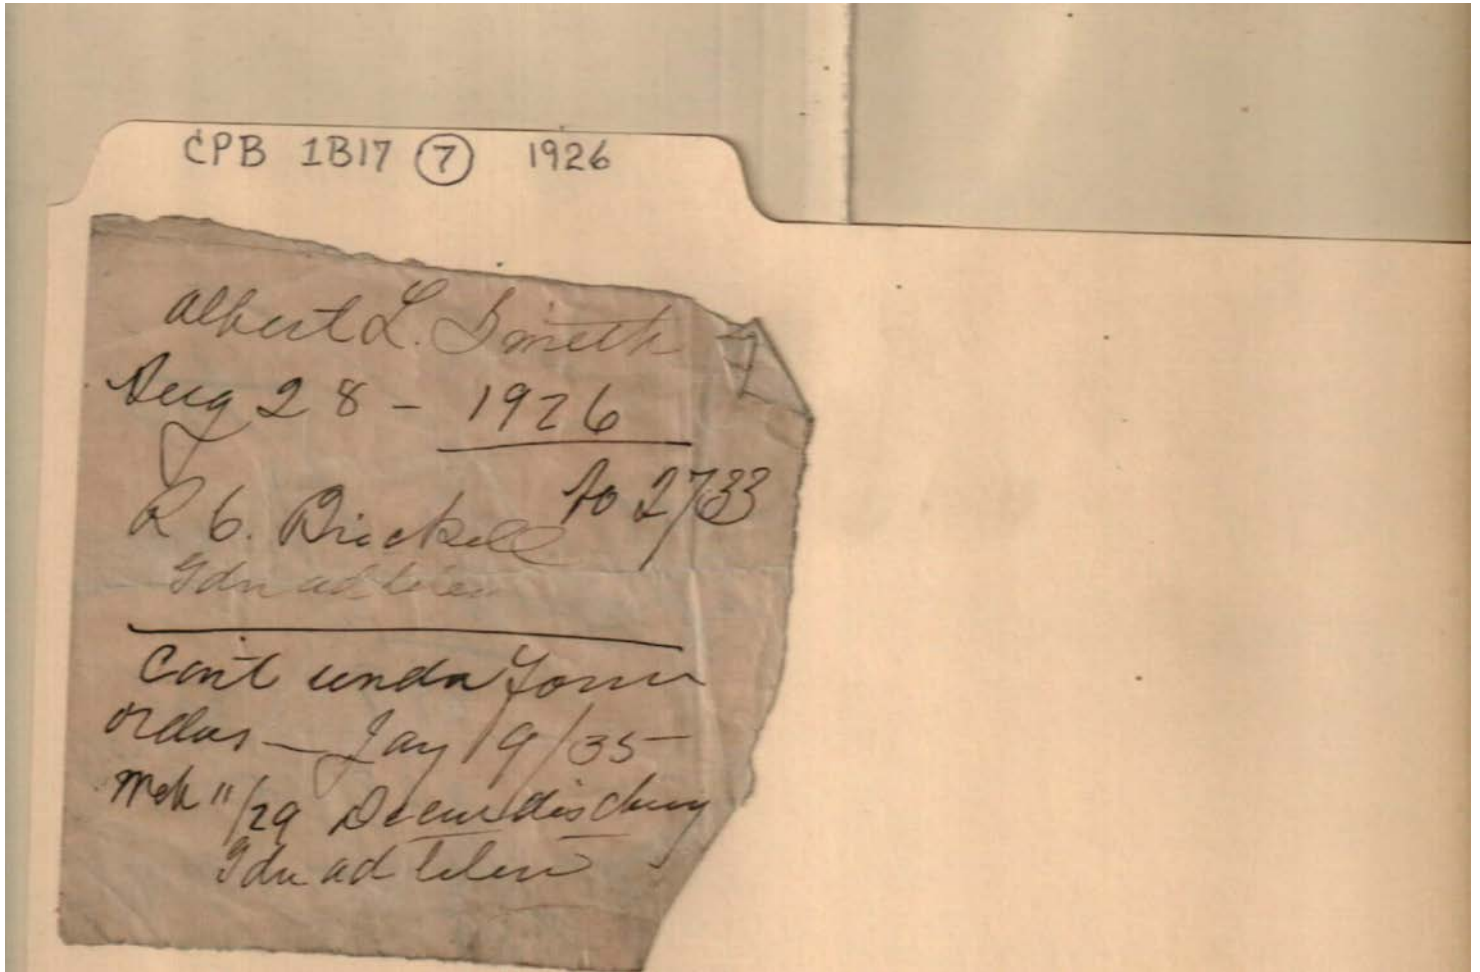 CPB 1B17 7 1926
Albert L. Smith
Aug 28 - 1926
to 2733
R C. Brickell
Gdn ad litem
Con't under form
orders - Jay 19/35
Mch 11/29 Decree dischrg
Gdn ad litem